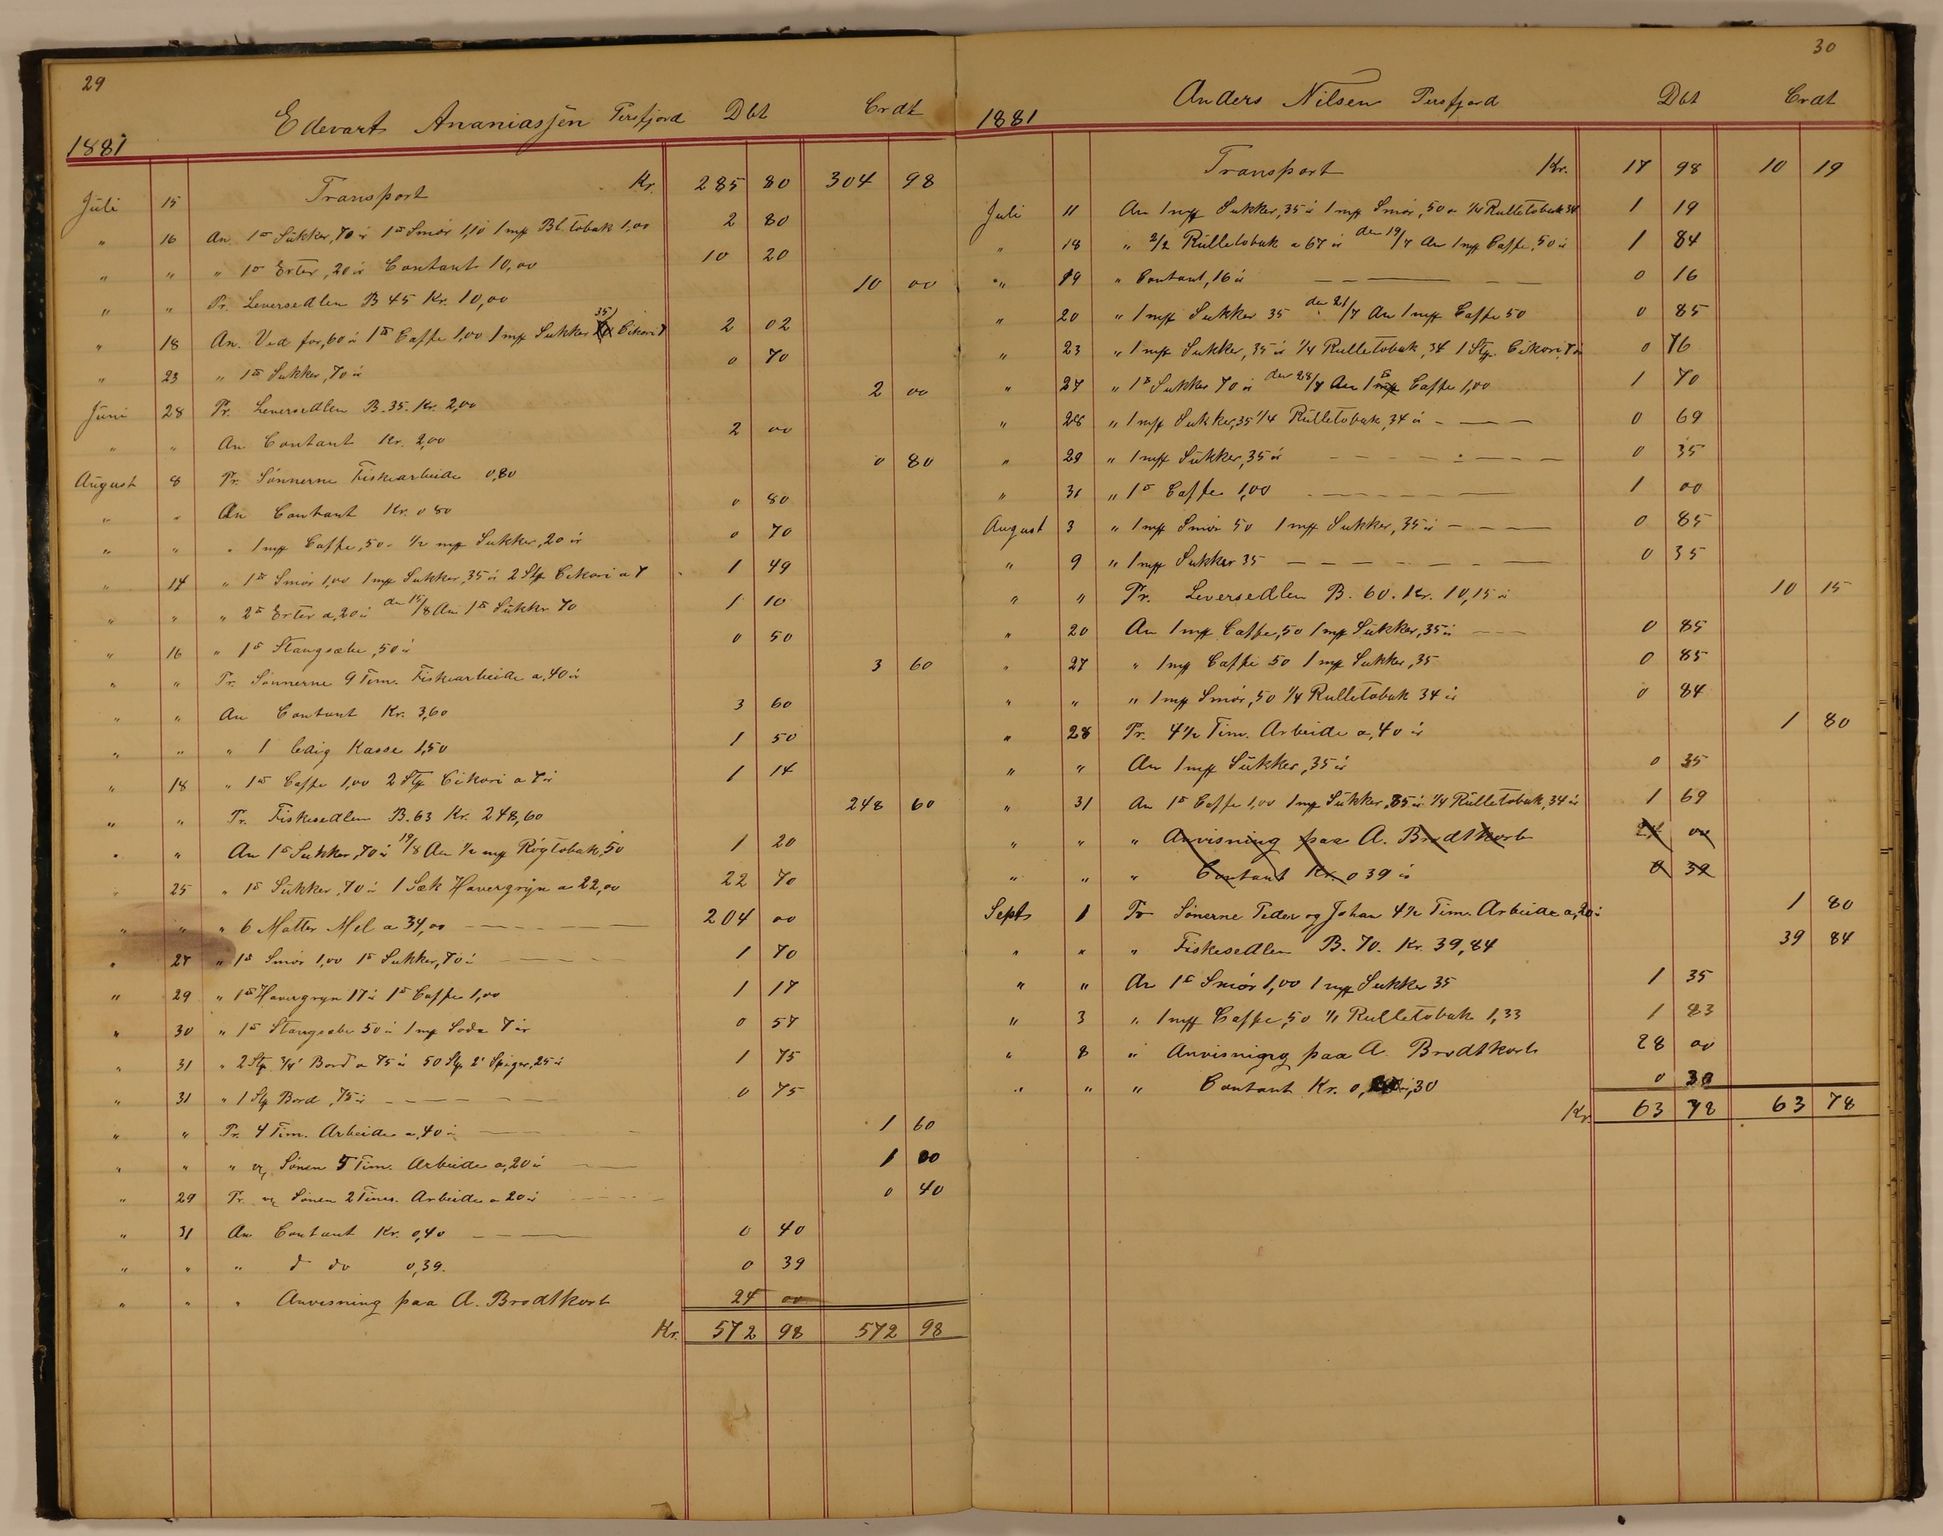 29
Edevart Ananiassen Persfjord Dbt Crdt
1881
Juli 15 Transport Kr. 285 80 304 98
" 16 An 1 ℔ Sukker, 70 ör 1 ℔ Smör 1,10 1 mpf Bl. tobak 1,00 2 80
" " " 1 ℔ Erter, 20 ör Contant 10,00 10 20
" " Pr. Leversedlen B 45 Kr. 10,00 10 00
" 18 An Ved for, 60 ö 1 ℔ Caffe 1,00 1 mpf Sukker 35 Cikori 7 2 02
" 23 " 1 ℔ Sukker, 70 ör 0 70
Juni 28 Pr. Leversedlen B. 35. Kr. 2,00 2 00
" " An Contant Kr. 2,00 2 00
August 8 Pr. Sønnerne Fiskearbeide 0,80 0 80
" " An Contant Kr. 0 80 0 80
" " " 1 mpf Caffe, 50 - 1/2 mpf Sukker, 20 ör 0 70
" 14 " 1 ℔ Smör 1,00 1 mpf Sukker, 35 ö 2 Stp Cikori a 7 1 49
" " " 2 ℔ Erter a, 20 ö den 15/8 An 1 ℔ Sukker 70 1 10
" 16 " 1 ℔ Stangsæbe, 50 ö 0 50
" " Pr. Sønnerne 9 Tim. Fiskearbeide a, 40 ör 3 60
" " An Contant Kr. 3,60 3 60
" " " 1 ledig Kasse 1,50 1 50
" 18 " 1 ℔ Caffe 1,00 2 Stp Cikori a 7 ör 1 14
" " Pr. Fiskesedlen B. 63 Kr. 248,60 248 60
" " An 1 ℔ Sukker, 70 ö 19/8 An 1/2 mpf Røgtobak, 50 1 20
" 25 " 1 ℔ Sukker, 70 ö 1 Sæk Havergryn a 22,00 22 70
" " " 6 Matter Mel a 34,00 204 00
" 27 " 1 ℔ Smör 1,00 1 ℔ Sukker, 70 ö 1 70
" 29 " 1 ℔ Havergryn 17 ö 1 ℔ Caffe 1,00 1 17
" 30 " 1 ℔ Stangsæbe 50 ö 1 mpf Soda 7 ör 0 57
" 31 " 2 Stp 3/4" Bord a 75 ö 50 Stp 2" Spiger, 25 ö 1 75
" 31 " 1 Stp Bord, 75 ö 0 75
" " Pr. 4 Tim. Arbeide a, 40 ö 1 60
" " " Sönen 5 Tim. Arbeide a, 20 ö 1 00
" 29 Pr. Sönen 2 Times Arbeide a 20 ö 0 40
" 31 An Contant Kr. 0,40 0 40
" " " d do 0,39. 0 39
" " " Anvisning paa A. Brodtkorb 24 00
Kr. 572 98 572 98
30
Anders Nilsen Persfjord Dbt Crdt
1881
Transport Kr. 17 98 10 19
Juli 11 An 1 mpf Sukker, 35 ö 1 mpf Smör, 50 ö 1/4 Rulletobak 34 1 19
" 18 " 2/2 Rulletobak a 67 ör den 19/7 An 1 mpf Caffe, 50 ö 1 84
" 19 " Contant, 16 ö 0 16
" 20 " 1 mpf Sukker 35 den 21/7 An 1 mpf Caffe 50 0 85
" 23 " 1 mpf Sukker, 35 ö 1/4 Rulletobak, 34 1 Stp. Cikori, 7 ö 0 76
" 27 " 1 ℔ Sukker 70 ö den 28/7 An 1 ℔ Caffe 1,00 1 70
" 28 " 1 mpf Sukker, 35 1/4 Rulletobak, 34 ö 0 69
" 29 " 1 mpf Sukker, 35 ö 0 35
" 31 " 1 ℔ Caffe 1,00 1 00
August 3 " 1 mpf Smör 50 1 mpf Sukker, 35 ö 0 85
" 9 " 1 mpf Sukker 35 0 35
" " Pr. Leversedlen B. 60. Kr. 10,15 ö 10 15
" 20 An 1 mpf Caffe, 50 1 mpf Sukker, 35 ö 0 85
" 27 " 1 mpf Caffe 50 1 mpf Sukker, 35 0 85
" " " 1 mpf Smör, 50 1/4 Rulletobak 34 ör 0 84
" 28 Pr. 4 1/2 Tim. Arbeide a, 40 ör 1 80
" " An 1 mpf Sukker, 35 ö 0 35
" 31 An 1 ℔ Caffe 1,00 1 mpf Sukker, 35 ö 1/4 Rulletobak, 34 ör 1 69
" " " Anvisning paa A. Brodtkorb 00
" " " Contant Kr. 0 39 ö 0 39
Sept 1 Pr Sönerne Peder og Johan 4 1/2 Tim. Arbeide a, 20 ö 1 80
" " " Fiskesedlen B. 70. Kr. 39,84 39 84
" " An 1 ℔ Smör 1,00 1 mpf Sukker 35 1 35
" 3 " 1 mpf Caffe, 50 1/1 Rulletobak 1,33 1 83
" 8 " Anvisning paa A. Brodtkorb 28 00
" " " Contant Kr. 0,30 0 30
Kr. 63 78 63 78